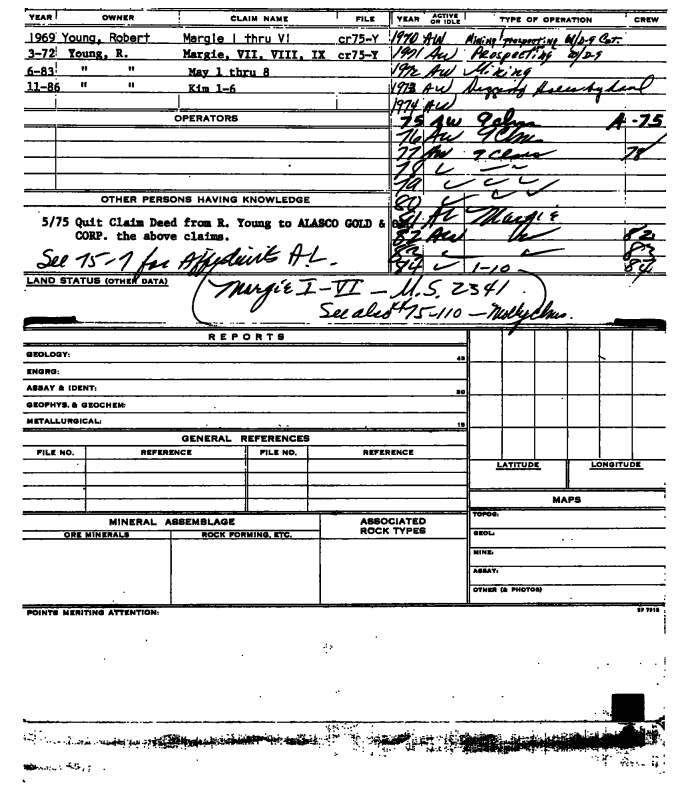 YEAR OWNER CLAIM NAME FILE YEAR ACTIVE OR IDLE TYPE OF OPERATION CREW
1969 Young, Robert Margie I thru VI cr75-Y 1970 AW Mining & prospecting W/D-9 Cat.
3-72 Young, R. Margie, VII, VIII, IX cr75-Y 1971 AW Prospecting W/D-9
6-83 " " May 1 thru 8 1972 AW Mining
11-86 " " Kim 1-6 1973 AW Digging by hand
1974 AW
OPERATORS 75 AW 9 clms A-75
76 AW 9 Clms
77 AW 9 clms 78
78
79
OTHER PERSONS HAVING KNOWLEDGE 80
5/75 Quit Claim Deed from R. Young to ALASCO GOLD & 81 AL Margie
CORP. the above claims. 82 AW 82
See 75-7 for Affidavits A.L. 83 83
84 1-10 84
LAND STATUS (OTHER DATA) Margie I-VI - M.S. 2341
See also #75-110 - Molly clms.
REPORTS
GEOLOGY: 45
ENGRG:
ASSAY & IDENT: 30
GEOPHYS. & GEOCHEM:
METALLURGICAL: 15
GENERAL REFERENCES
FILE NO. REFERENCE FILE NO. REFERENCE
LATITUDE LONGITUDE
MAPS
MINERAL ASSEMBLAGE ASSOCIATED ROCK TYPES TOPOG:
ORE MINERALS ROCK FORMING, ETC. GEOL:
MINE:
ASSAY:
OTHER (& PHOTOS)
POINTS MERITING ATTENTION: